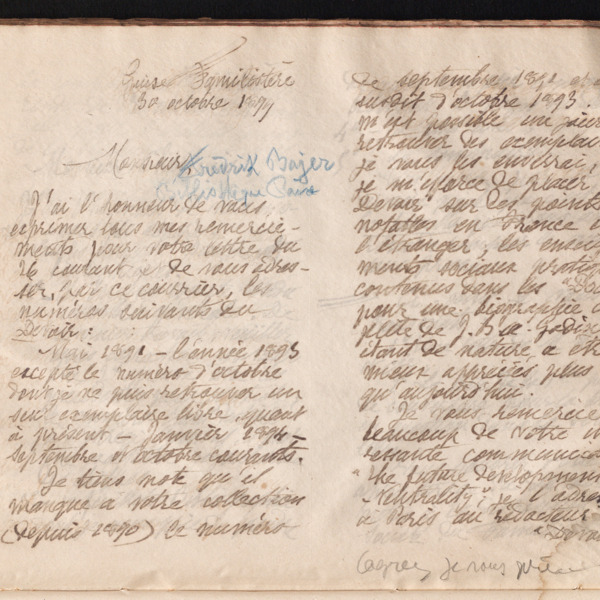 Guise Familistère
30 octobre 1894
Monsieur Fredrik Bajer
Bibliothèque
J'ai l'honneur de vous
exprimer tous mes remercie-
ments pour votre lettre du
26 courant et de vous adres-
ser, par ce courrier, les
numéros suivants du
Devoir :
Mai 1891 - l'année 1893
excepté le numéro d'octobre
dont je ne puis retrouver un
seul exemplaire libre, quant
à présent - Janvier 1894 -
septembre et octobre courants.
Je tiens note qu'il
manque à votre collection
(depuis 1890) le numéro
de septembre 1891 et
susdit d'octobre 1893.
m'est possible un jour
retrouver des exemplai
je vous les enverrai,
je m'efforce de placer
Devoir sur les points
notables en France
l'étranger, les ensei
ments sociaux pratiq
contenus dans les "De
pour une biographie
plète de J. B. A. Godin
étant de nature à êtr
mieux appréciés plus
qu'aujourd'hui.
Je vous remercie
beaucoup de votre in
ressante communica
"the future development
- neutrality", je l'adres
à Paris au rédacteur
"Devo
Agréez, je vous prie